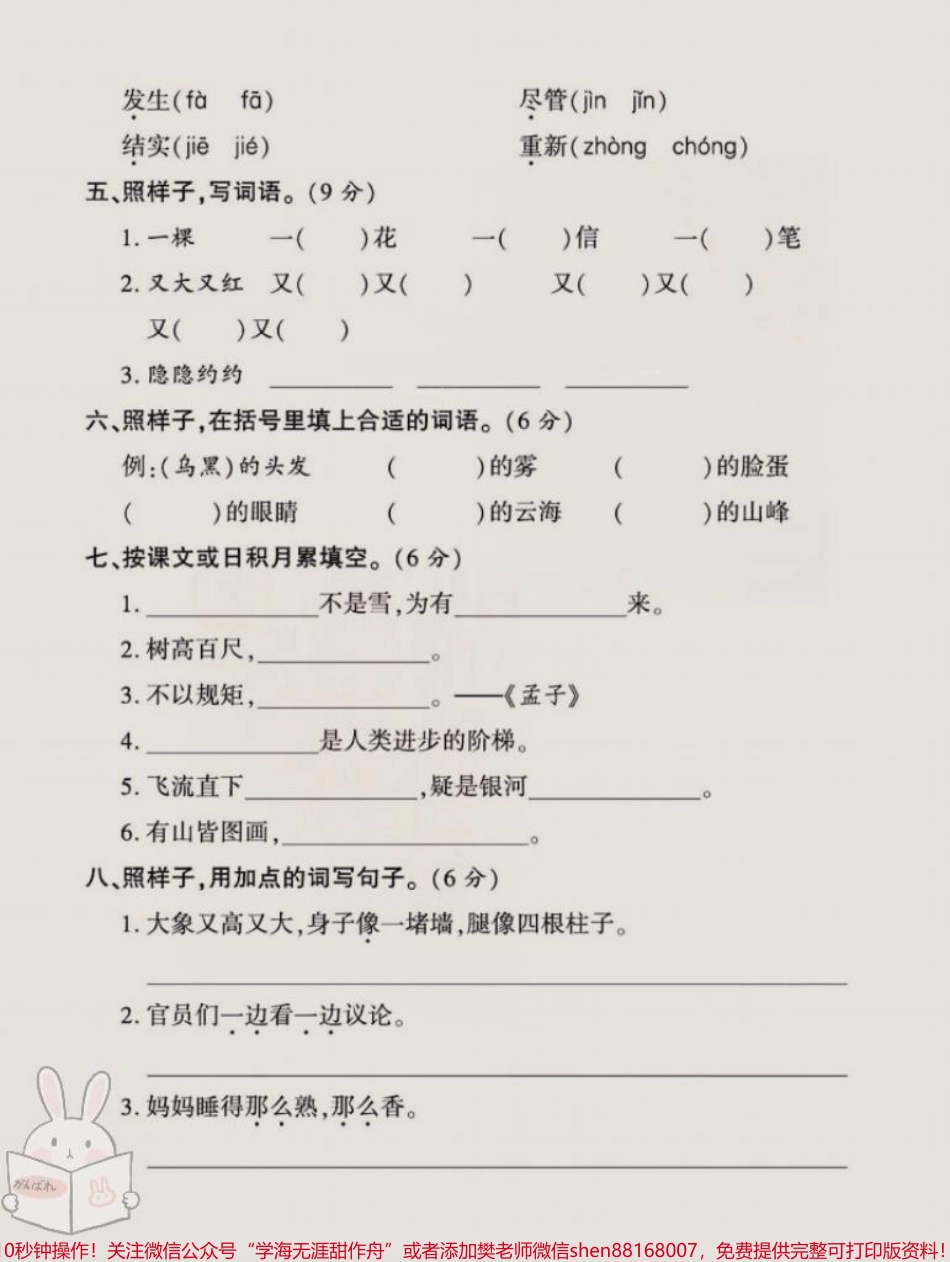 发生(fà fā) 尽管(jìn jǐn)
结实(jiē jié) 重新(zhòng chóng)
五、照样子,写词语。(9 分)
1. 一棵 一( )花 一( )信 一( )笔
2. 又大又红 又( )又( ) 又( )又( )
又( )又( )
3. 隐隐约约 __________ __________ __________
六、照样子,在括号里填上合适的词语。(6 分)
例:(乌黑)的头发 ( )的雾 ( )的脸蛋
( )的眼睛 ( )的云海 ( )的山峰
七、按课文或日积月累填空。(6 分)
1. ______________不是雪,为有______________来。
2. 树高百尺,______________。
3. 不以规矩,______________。——《孟子》
4. ______________是人类进步的阶梯。
5. 飞流直下______________,疑是银河______________。
6. 有山皆图画,____________________。
八、照样子,用加点的词写句子。(6 分)
1. 大象又高又大,身子像一堵墙,腿像四根柱子。
2. 官员们一边看一边议论。
3. 妈妈睡得那么熟,那么香。
がんばれ
0秒钟操作！关注微信公众号“学海无涯甜作舟”或者添加樊老师微信shen88168007，免费提供完整可打印版资料！